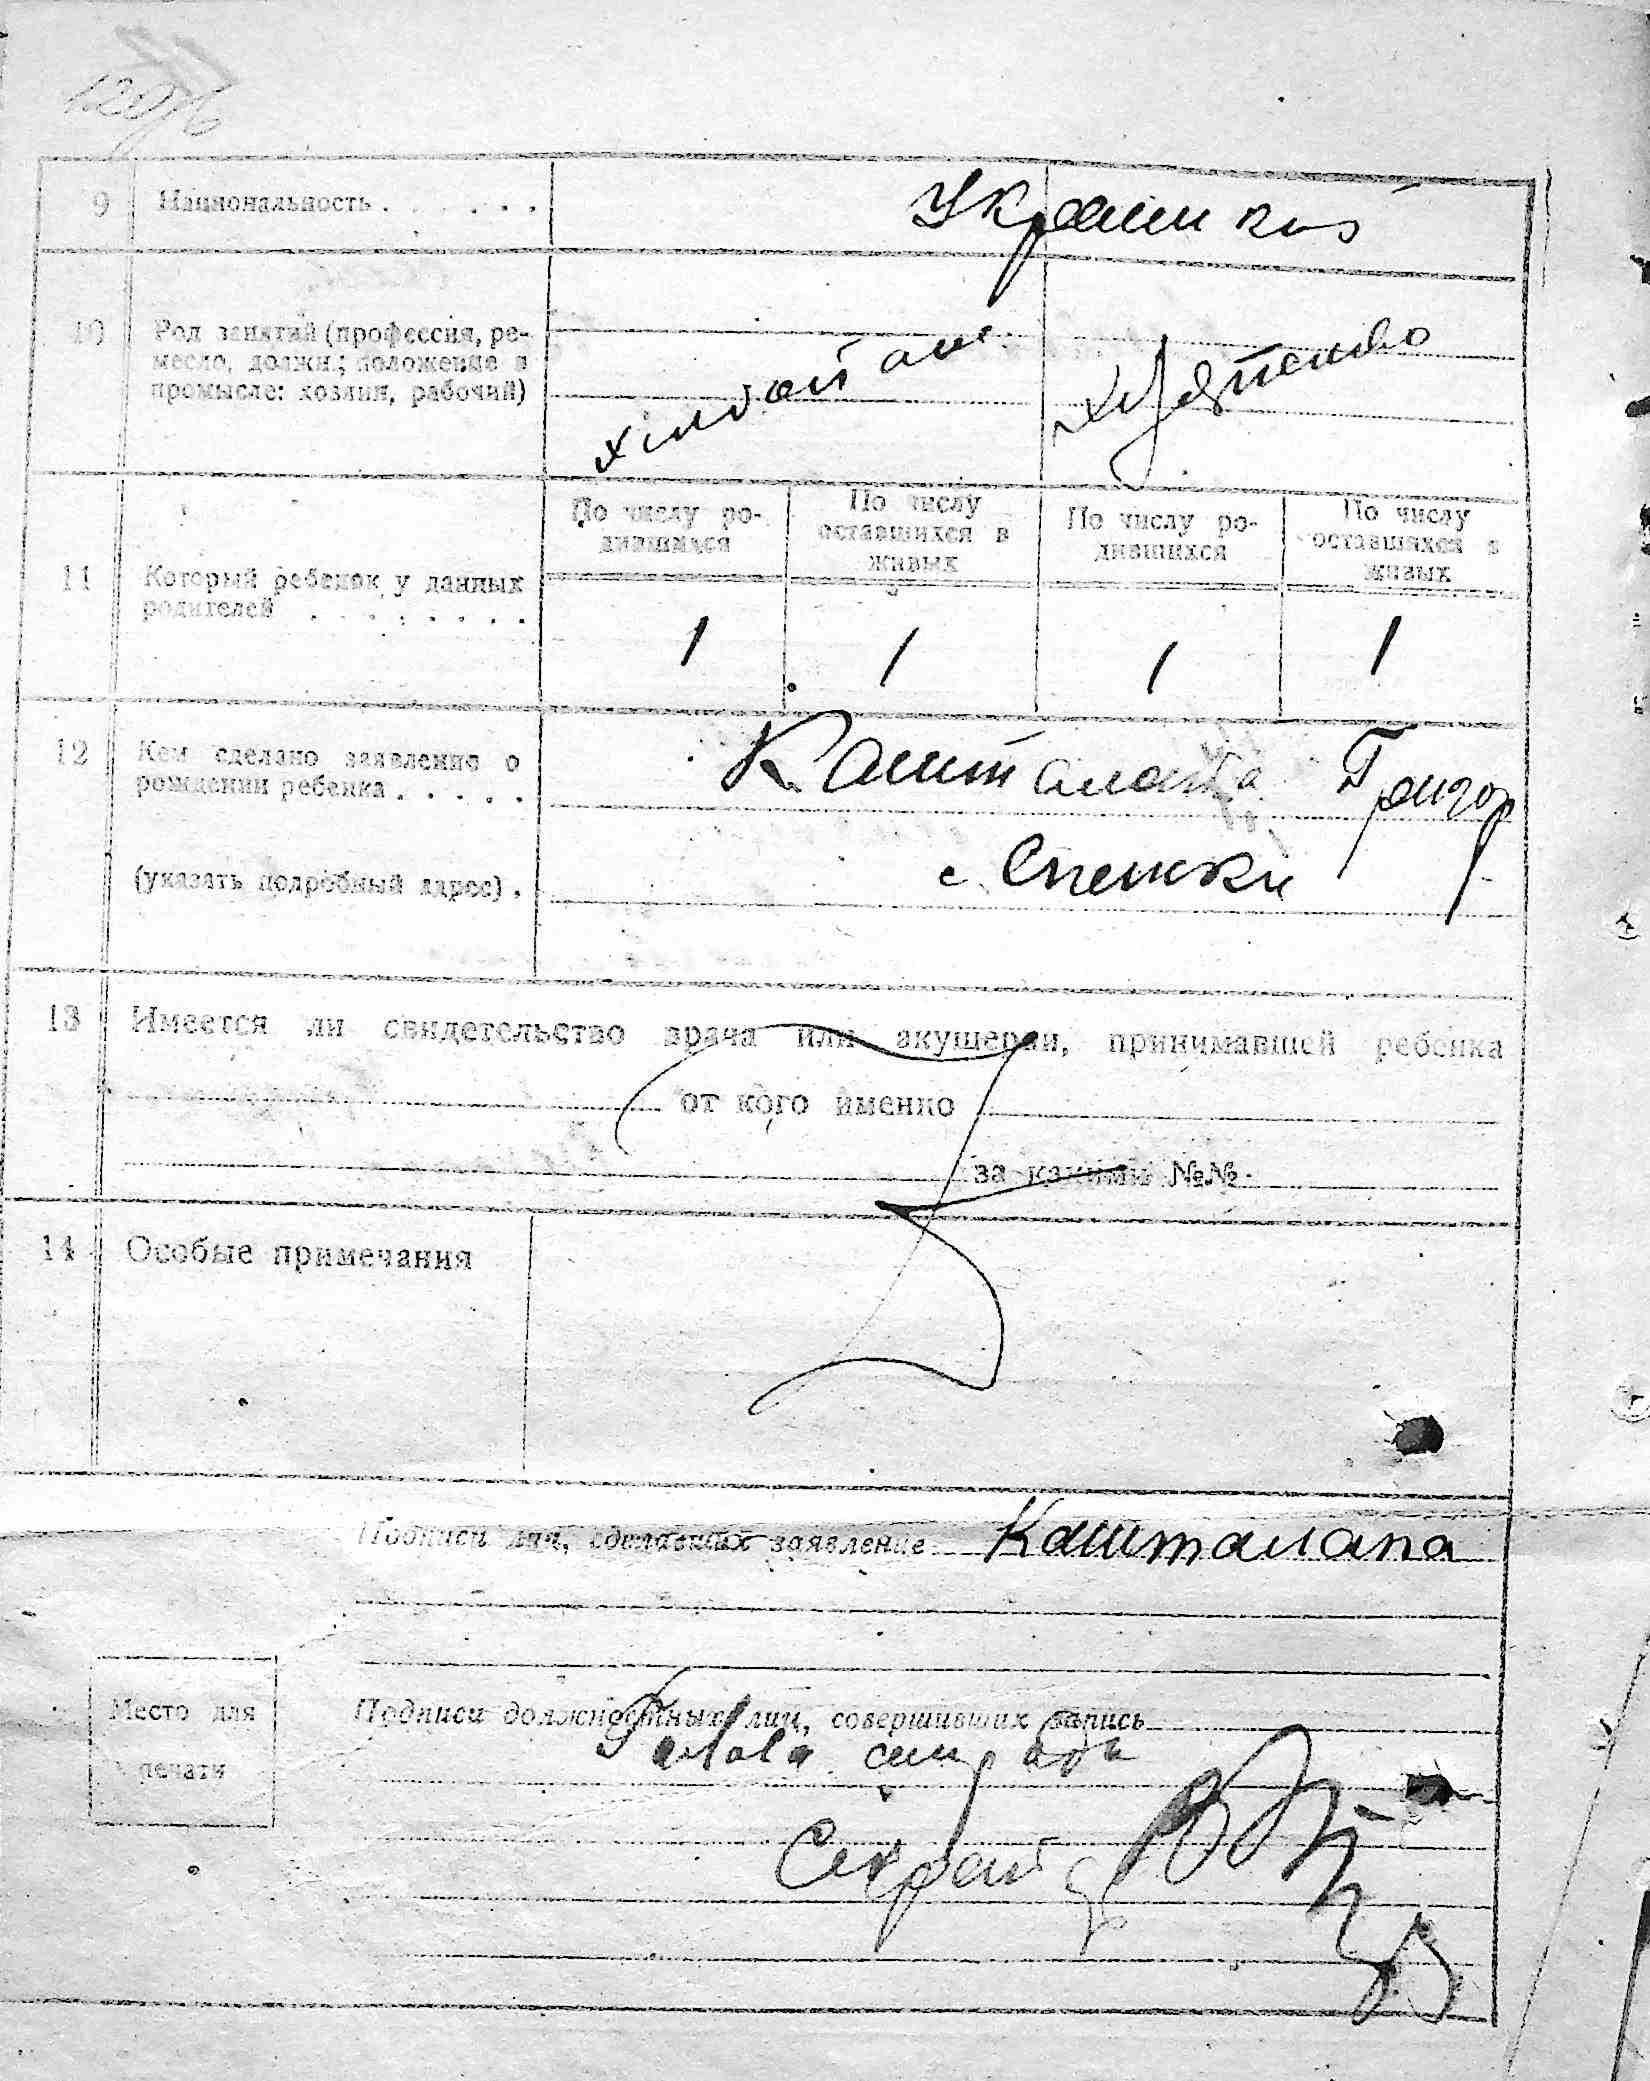 9 Национальность . . . . . .
10 Род занятий (профессия, ре-
месло, должн.; положение в
промысле: хозяин, рабочий)
По числу ро-
дившихся
По числу
оставшихся в
живых
По числу ро-
дившихся
По числу
оставшихся в
живых
11 Который ребенок у данных
родителей . . . . . . . .
1 1 1 1
12 Кем сделано заявление о
рождении ребенка . . . . .
Кашталапа Григор
(указать подробный адрес) .
с. Снежки
13 Имеется ли свидетельство врача или акушерки, принимавшей ребенка
от кого именно
за какими №№
14 Особые примечания
Подписи лиц, сделавших заявление Кашталапа
Место для
печати
Подписи должностных лиц, совершивших запись
Голова сільради
Секрет